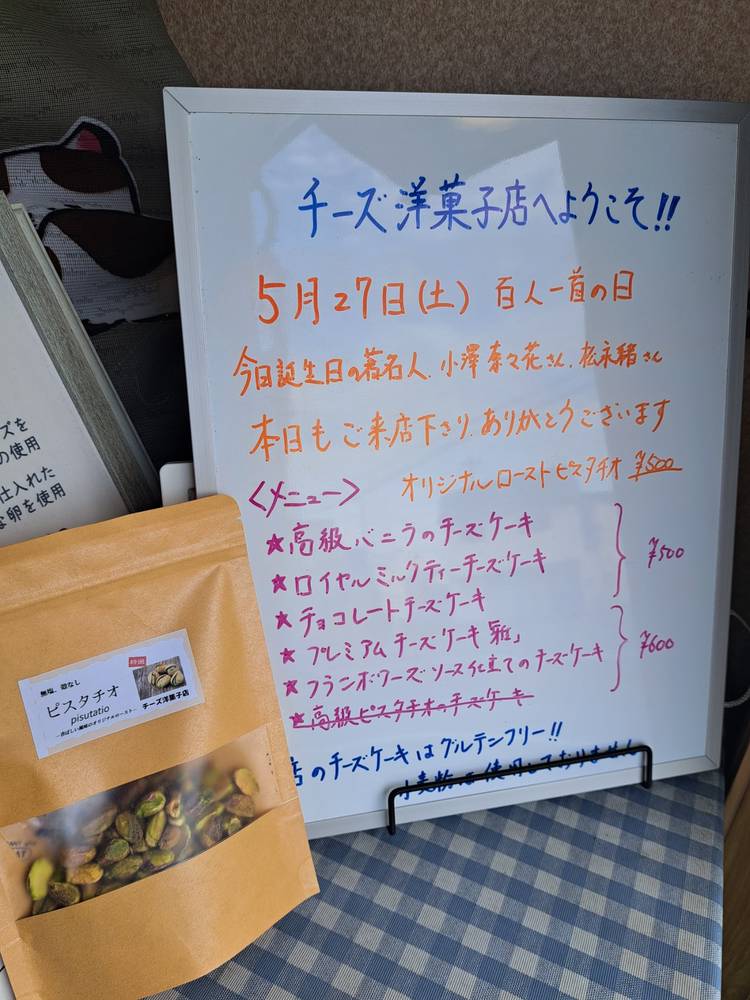 チーズ洋菓子店へようこそ!!
5月27日(土) 百人一首の日
今日誕生日の著名人、小澤奈々花さん、松永緒さん
本日もご来店下さり、ありがとうございます
オリジナルローストピスタチオ ¥500
<メニュー>
★高級バニラのチーズケーキ
★ロイヤルミルクティーチーズケーキ
★チョコレートチーズケーキ
¥500
★プレミアムチーズケーキ「雅」
★フランボワーズソース仕立てのチーズケーキ
★高級ピスタチオのチーズケーキ
¥600
店のチーズケーキはグルテンフリー!!
小麦粉は使用しておりません
ズを
の使用
仕入れた
な卵を使用
特選
無塩、砂なし
ピスタチオ
pisutatio
チーズ洋菓子店